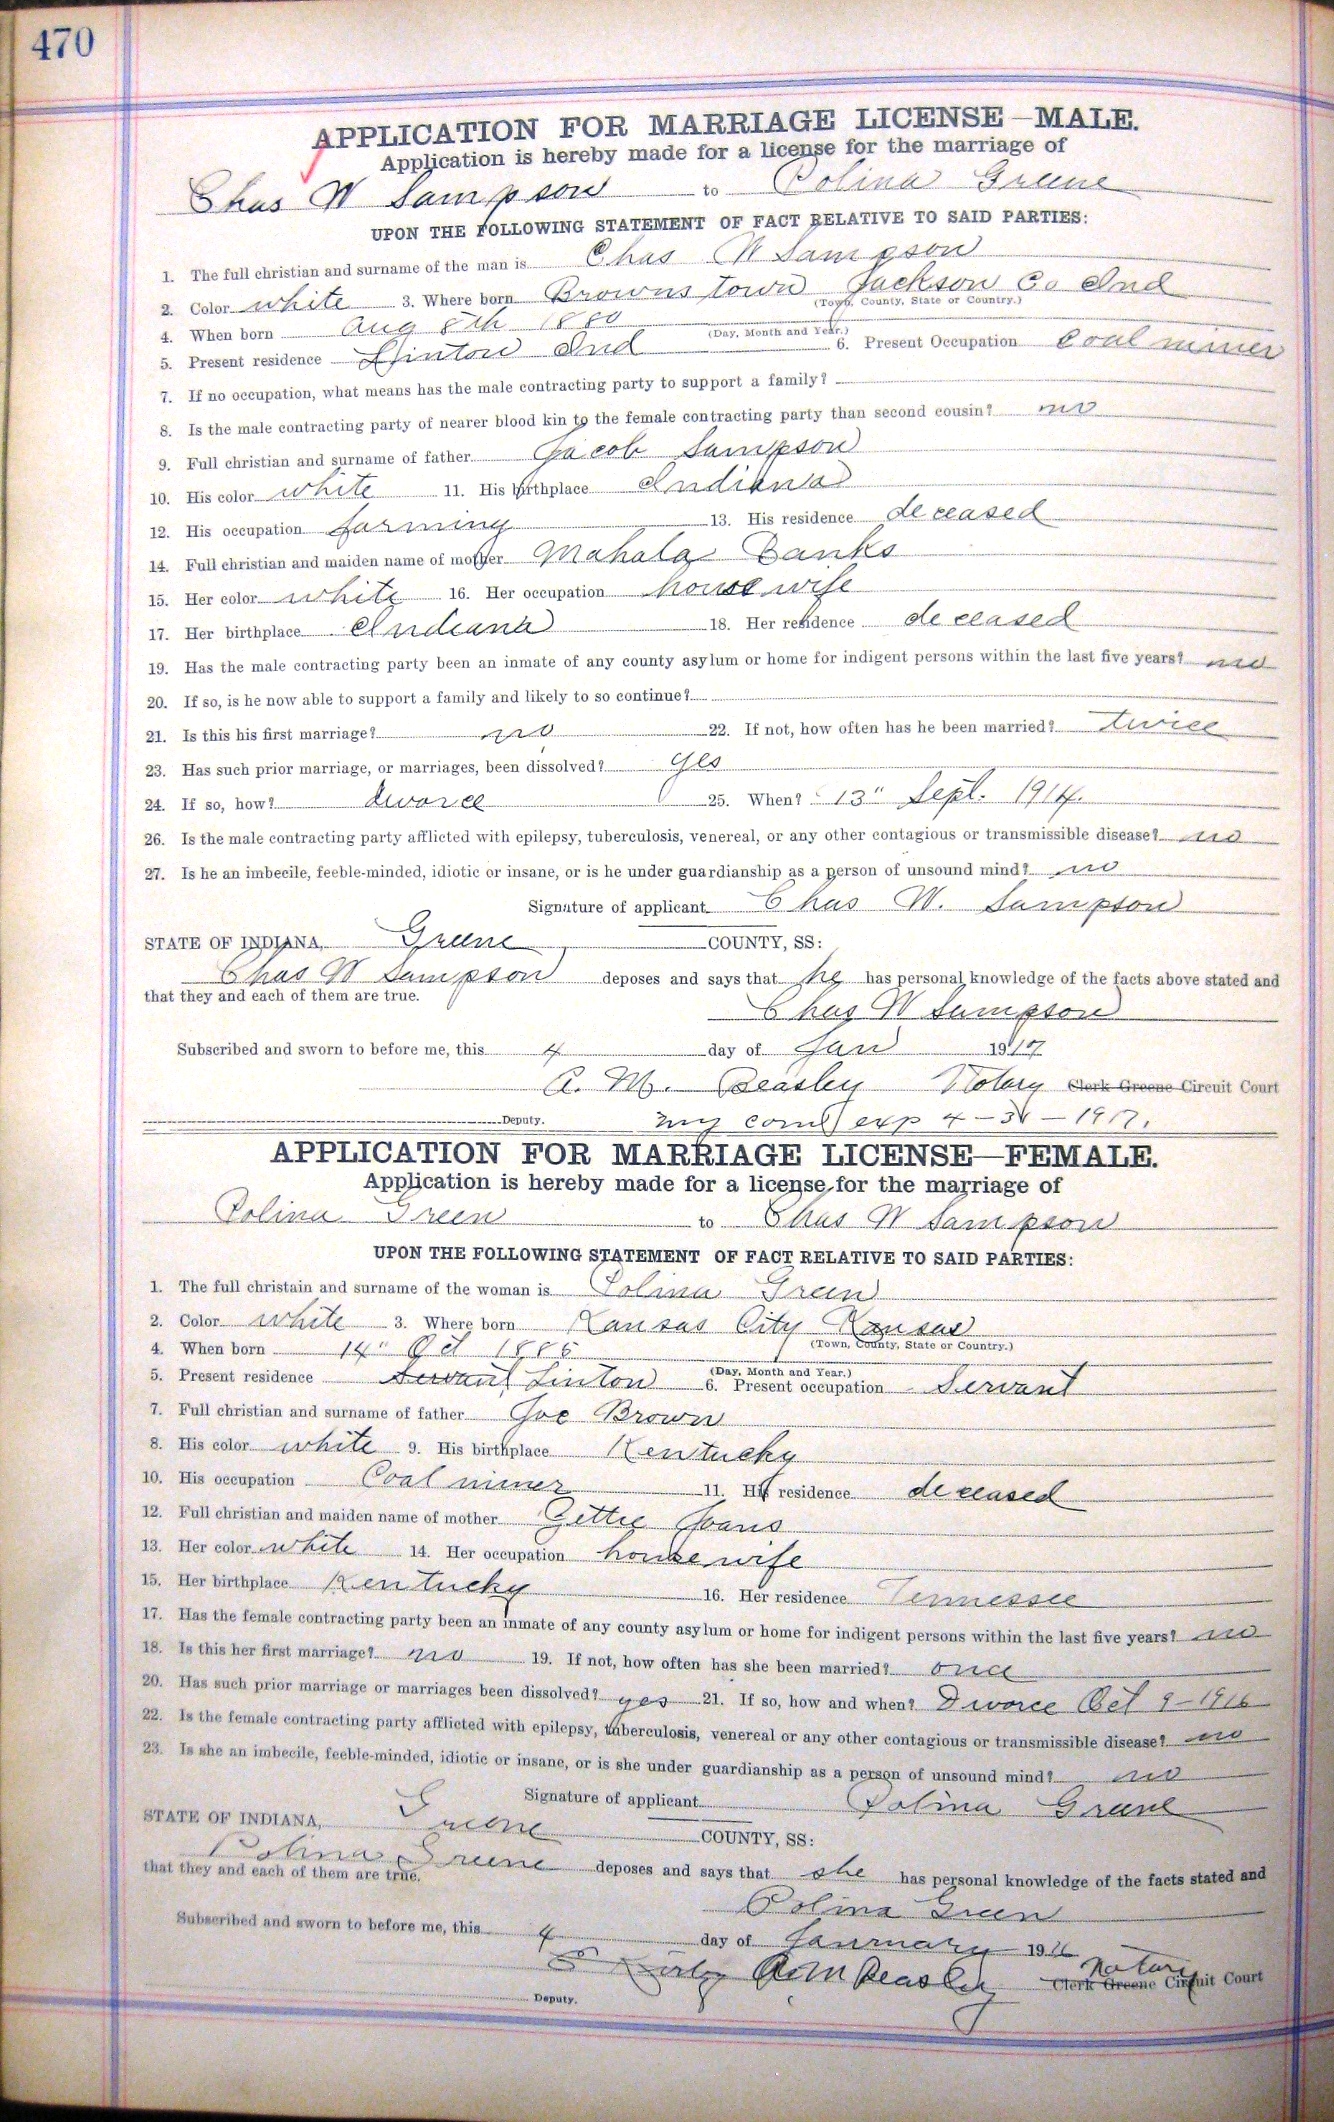 470
APPLICATION FOR MARRIAGE LICENSE—MALE.
Application is hereby made for a license for the marriage of
Chas W Sampson to Polina Greene
UPON THE FOLLOWING STATEMENT OF FACT RELATIVE TO SAID PARTIES:
1. The full christian and surname of the man is Chas W Sampson
2. Color white 3. Where born Browns town Jackson Co Ind
(Town, County, State or Country.)
4. When born Aug 8th 1880 (Day, Month and Year.)
5. Present residence Linton Ind 6. Present Occupation Coal miner
7. If no occupation, what means has the male contracting party to support a family?
8. Is the male contracting party of nearer blood kin to the female contracting party than second cousin? no
9. Full christian and surname of father Jacob Sampson
10. His color white 11. His birthplace Indiana
12. His occupation farming 13. His residence deceased
14. Full christian and maiden name of mother Mahala Banks
15. Her color white 16. Her occupation house wife
17. Her birthplace Indiana 18. Her residence deceased
19. Has the male contracting party been an inmate of any county asylum or home for indigent persons within the last five years? no
20. If so, is he now able to support a family and likely to so continue?
21. Is this his first marriage? no 22. If not, how often has he been married? twice
23. Has such prior marriage, or marriages, been dissolved? yes
24. If so, how? divorce 25. When? 13" Sept. 1914.
26. Is the male contracting party afflicted with epilepsy, tuberculosis, venereal, or any other contagious or transmissible disease? no
27. Is he an imbecile, feeble-minded, idiotic or insane, or is he under guardianship as a person of unsound mind? no
Signature of applicant Chas W. Sampson
STATE OF INDIANA, Greene COUNTY, SS:
Chas W Sampson deposes and says that he has personal knowledge of the facts above stated and
that they and each of them are true.
Chas W Sampson
Subscribed and sworn to before me, this 4 day of Jan 1917
A. M. Beasley Notary Clerk Greene Circuit Court
Deputy. my com exp 4 - - 1917.
APPLICATION FOR MARRIAGE LICENSE—FEMALE.
Application is hereby made for a license for the marriage of
Polina Green to Chas W Sampson
UPON THE FOLLOWING STATEMENT OF FACT RELATIVE TO SAID PARTIES:
1. The full christain and surname of the woman is Polina Green
2. Color white 3. Where born Kansas City Kansas
(Town, County, State or Country.)
4. When born 14" Oct 1886 (Day, Month and Year.)
5. Present residence Servant Linton 6. Present occupation Servant
7. Full christian and surname of father Joe Brown
8. His color white 9. His birthplace Kentucky
10. His occupation Coal miner 11. His residence deceased
12. Full christian and maiden name of mother
13. Her color white 14. Her occupation house wife
15. Her birthplace Kentucky 16. Her residence Tennessee
17. Has the female contracting party been an inmate of any county asylum or home for indigent persons within the last five years? no
18. Is this her first marriage? no 19. If not, how often has she been married? once
20. Has such prior marriage or marriages been dissolved? yes 21. If so, how and when? Divorce Oct 9-1916
22. Is the female contracting party afflicted with epilepsy, tuberculosis, venereal or any other contagious or transmissible disease? no
23. Is she an imbecile, feeble-minded, idiotic or insane, or is she under guardianship as a person of unsound mind? no
Signature of applicant Polina Greene
STATE OF INDIANA, Greene COUNTY, SS:
Polina Greene deposes and says that she has personal knowledge of the facts stated and
that they and each of them are true.
Polina Green
Subscribed and sworn to before me, this 4 day of January 1916
A M Beasley Notary Clerk Greene Circuit Court
Deputy.